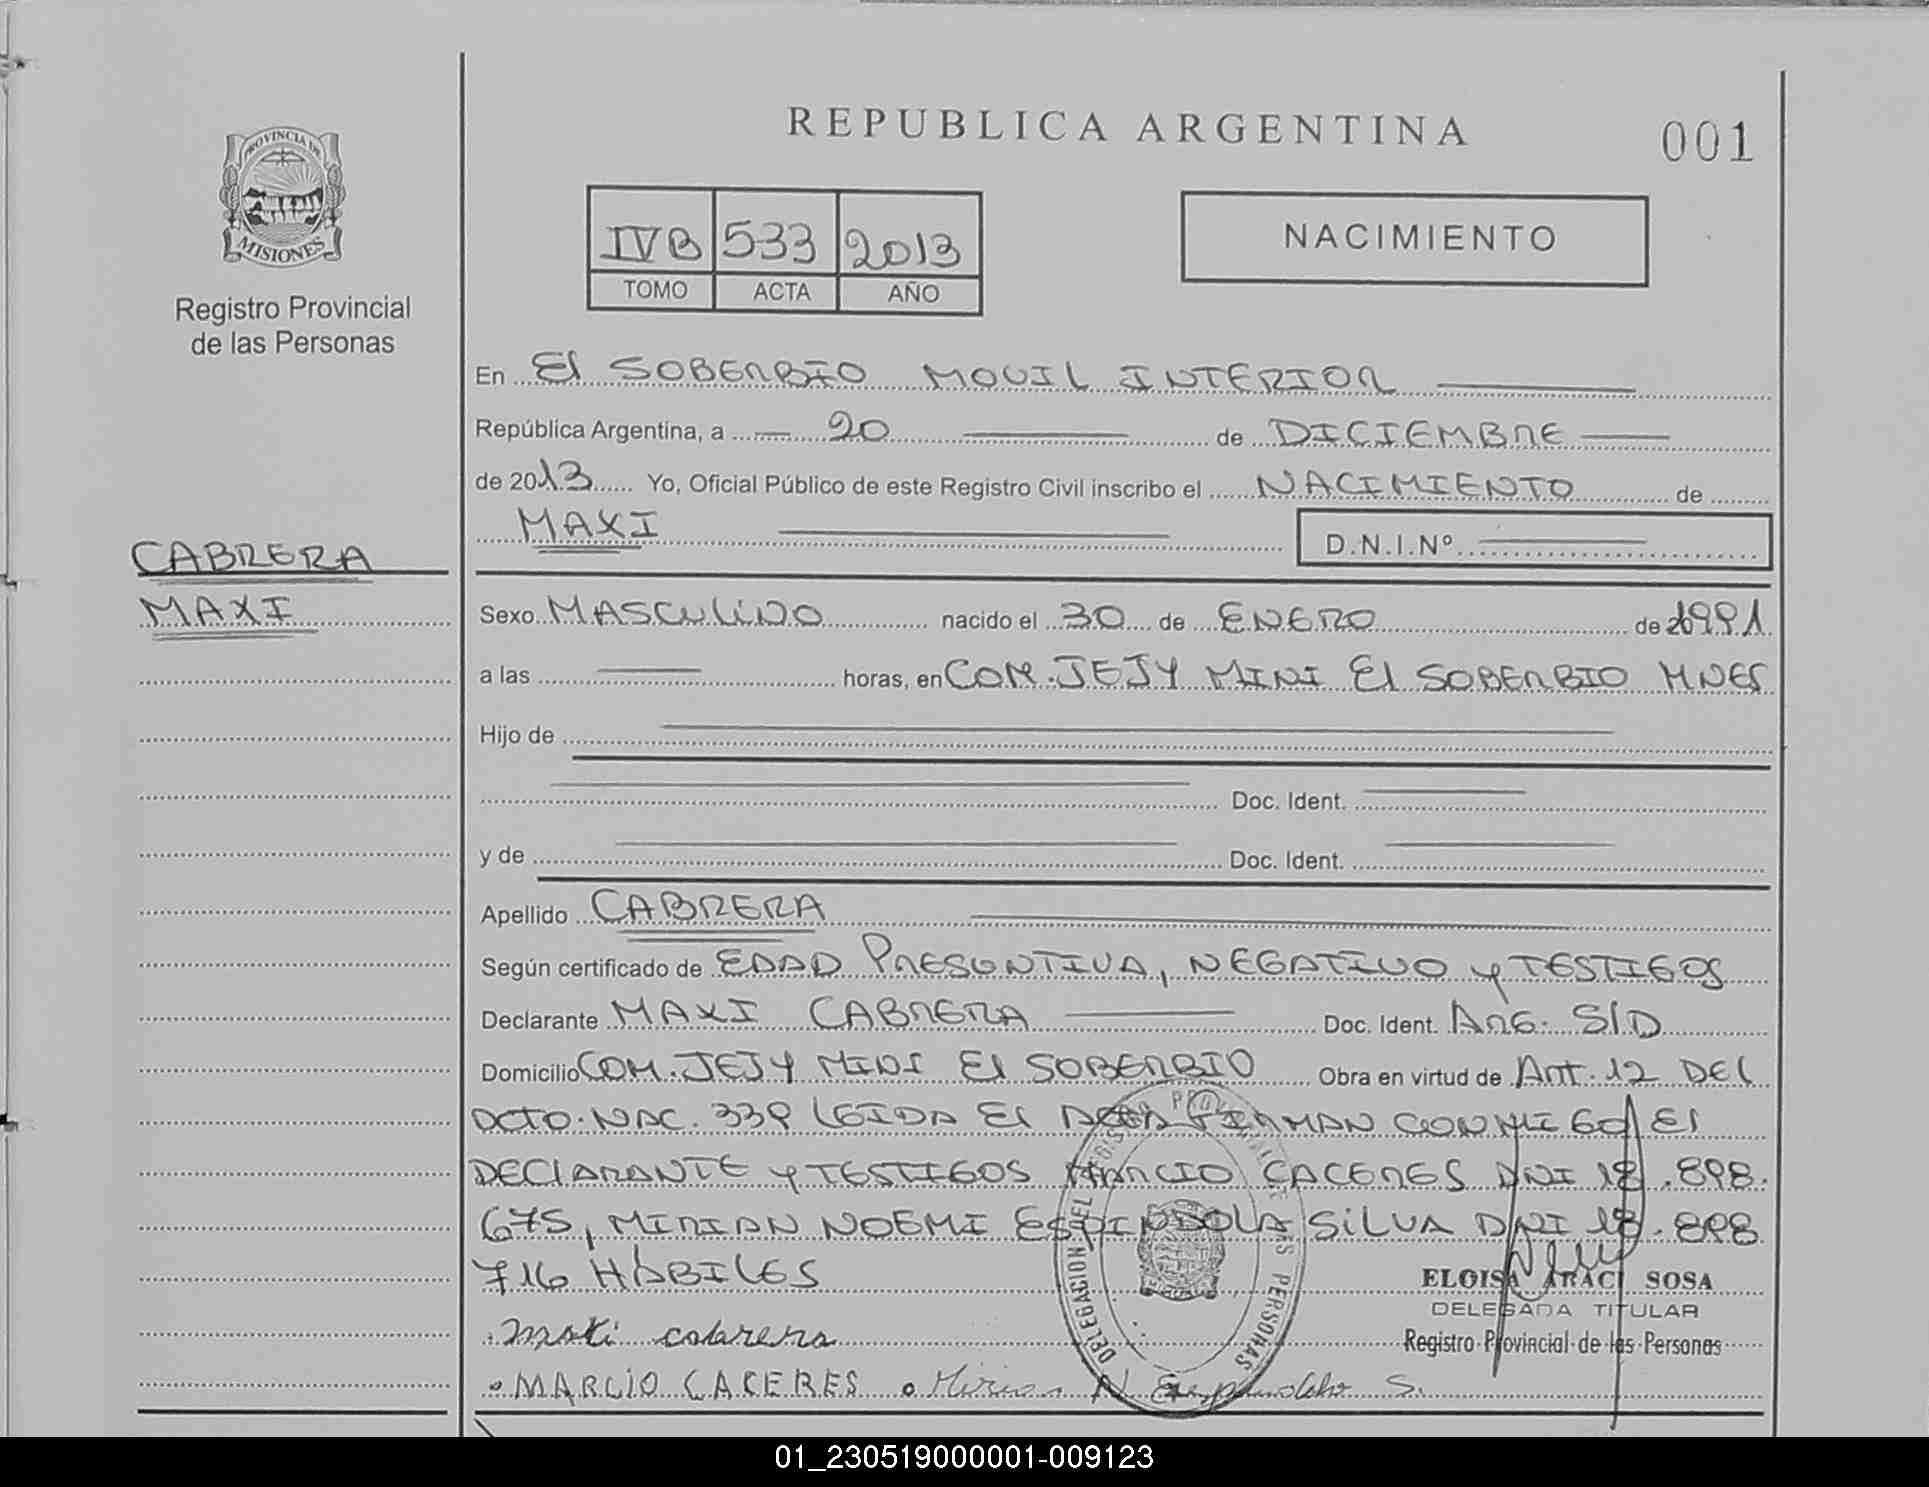 REPUBLICA ARGENTINA
001
PROVINCIA DE
MISIONES
Registro Provincial
de las Personas
IVB 533 2013
TOMO ACTA AÑO
NACIMIENTO
En El SOBERBIO MOVIL INTERIOR
República Argentina, a 20 de DICIEMBRE
de 2013 Yo, Oficial Público de este Registro Civil inscribo el NACIMIENTO de
MAXI D.N.I.Nº
CABRERA
MAXI
Sexo MASCULINO nacido el 30 de ENERO de 1991
a las horas, en COM. JEJY MINI El SOBERBIO MNES
Hijo de
Doc. Ident.
y de Doc. Ident.
Apellido CABRERA
Según certificado de EDAD PRESUNTIVA, NEGATIVO y TESTIGOS
Declarante MAXI CABRERA Doc. Ident. ARG. S/D
Domicilio COM. JEJY MINI El SOBERBIO Obra en virtud de Art. 12 DEL
DCTO. NAC. 339 LEIDA El ACTA FIRMAN CONMIGO El
DEClARANTE y TESTIGOS MARCIO CACERES DNI 18.898.
675, MIRIAN NOEMI ESPINDOLA SILVA DNI 18.898
716 HABILES
ELOISA ARACI SOSA
DELEGADA TITULAR
Registro Provincial de las Personas
maxi cabrera
MARCIO CACERES Mirian N Espindola S.
DELEGACION DEL PERSONAS
01_230519000001-009123